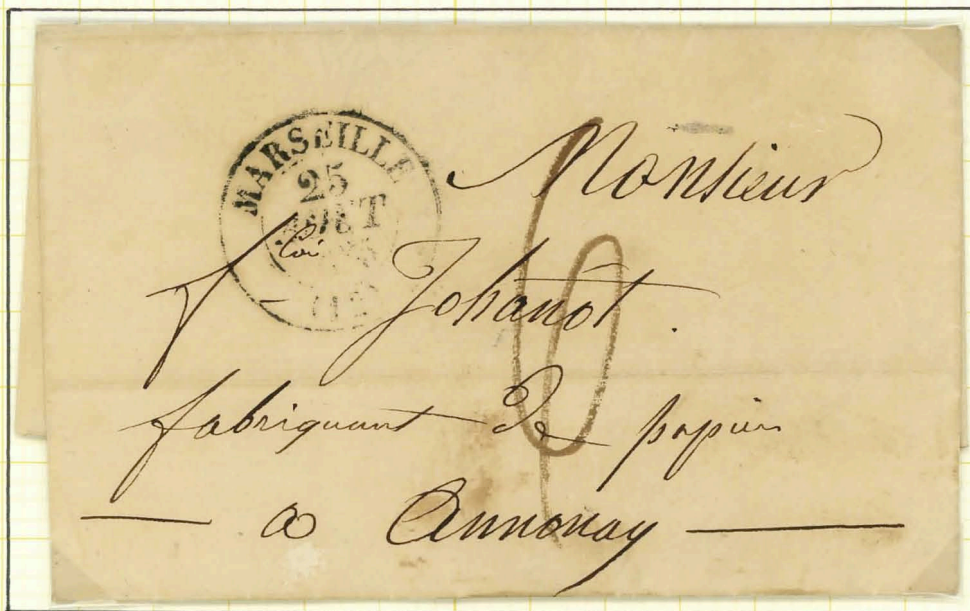 MARSEILLE
25
AOUT
(12)
Monsieur
fçois Johanot
fabriquant de papier
a Annonay
6